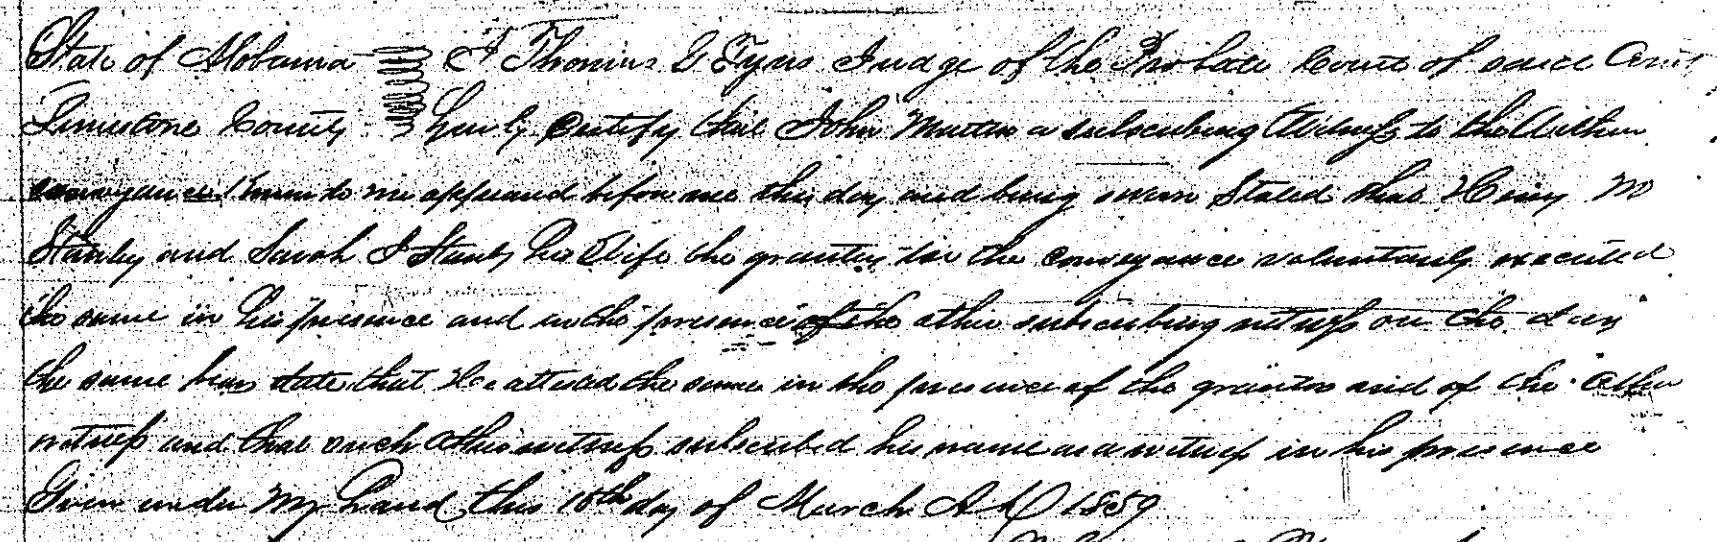 State of Alabama I Thomas G Tyus Judge of the Probate Court of said County
Limestone County hereby Certify that John Martin a subscribing Witness to the Within
conveyance known to me appeared before me this day and being sworn Stated that Henry M
Stanley and Sarah J Stanly his Wife the grantors in the conveyance voluntarily executed
the same in his presence and in the presence of the other subscribing witness on the day
the same bears date that He attested the same in the presence of the grantors and of the other
witness and that such other witness subscribed his name as a witness in his presence
Given under my hand this 15th day of March A D 1859